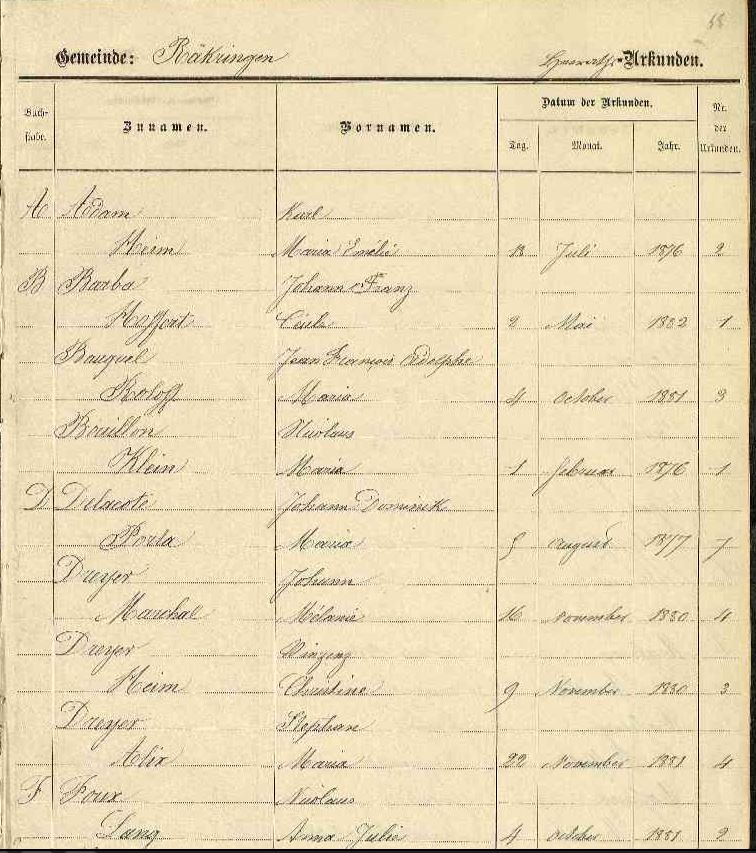 55
Gemeinde: Räkringen Heiraths-Urkunden.
Buch-stabe. Zunamen. Vornamen. Datum der Urkunden. Nr. der Urkunden.
Tag. Monat. Jahr.
A Addam Karl
Heim Maria Emélie 18 Juli 1876 2
B Barba Johann Franz
Hoffert 2 Mai 1882 1
Bauquel Jean François Adolphe
Koloff Maria 4 October 1881 3
Bouillon Nicolaus
Klein Maria 1 Februar 1876 1
D Delacote Johann Dominik
Porta Maria 5 August 1877 7
Dreyer Johann
Marchal Mélanie 16 November 1880 4
Dreyer Vinzenz
Heim Christine 9 November 1880 3
Dreyer Stephan
Alix Maria 22 November 1881 4
F Foux Nicolaus
Lang Anna Julie 4 October 1881 2